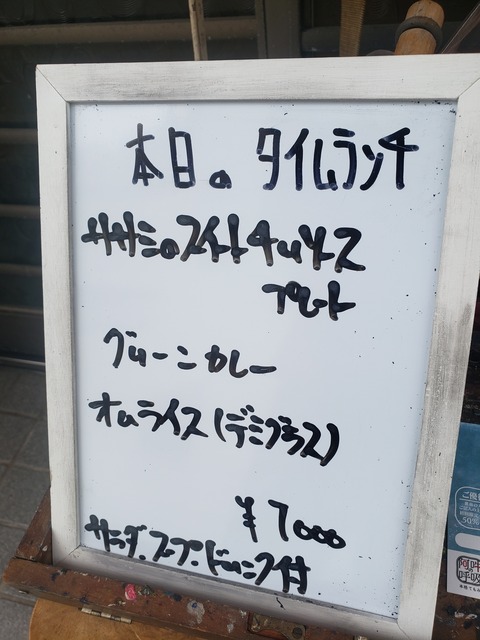 本日の タイムランチ
ササミのスイートチリソース
プレート
グリーンカレー
オムライス(デミグラス)
¥1000
サラダ、スープ、ドリンク付
ご優
50%
阿吽
の
呼吸